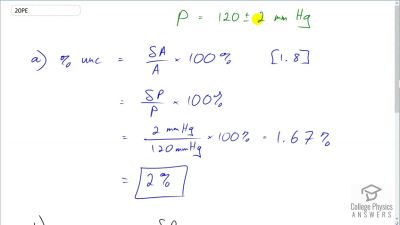 20PE
P = 120 ± 2 mm Hg
a) % unc = δA/A × 100 % [1.8]
= δP/P × 100%
= 2 mmHg/120 mmHg × 100% = 1.67%
= 2%
College Physics
ANSWERS